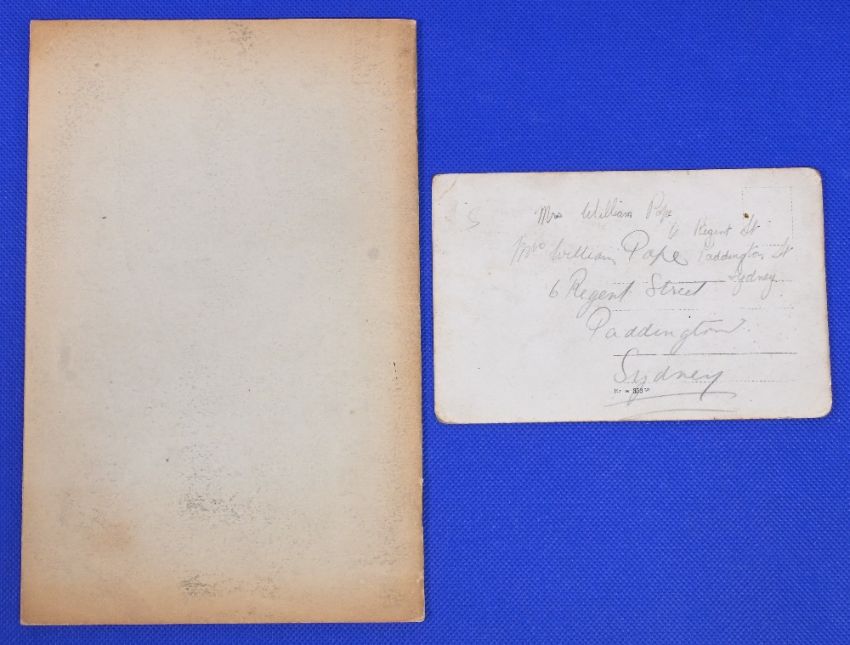 Mrs William Pope
6 Regent St
Paddington St
Sydney
Mrs William Pope
6 Regent Street
Paddington
Sydney